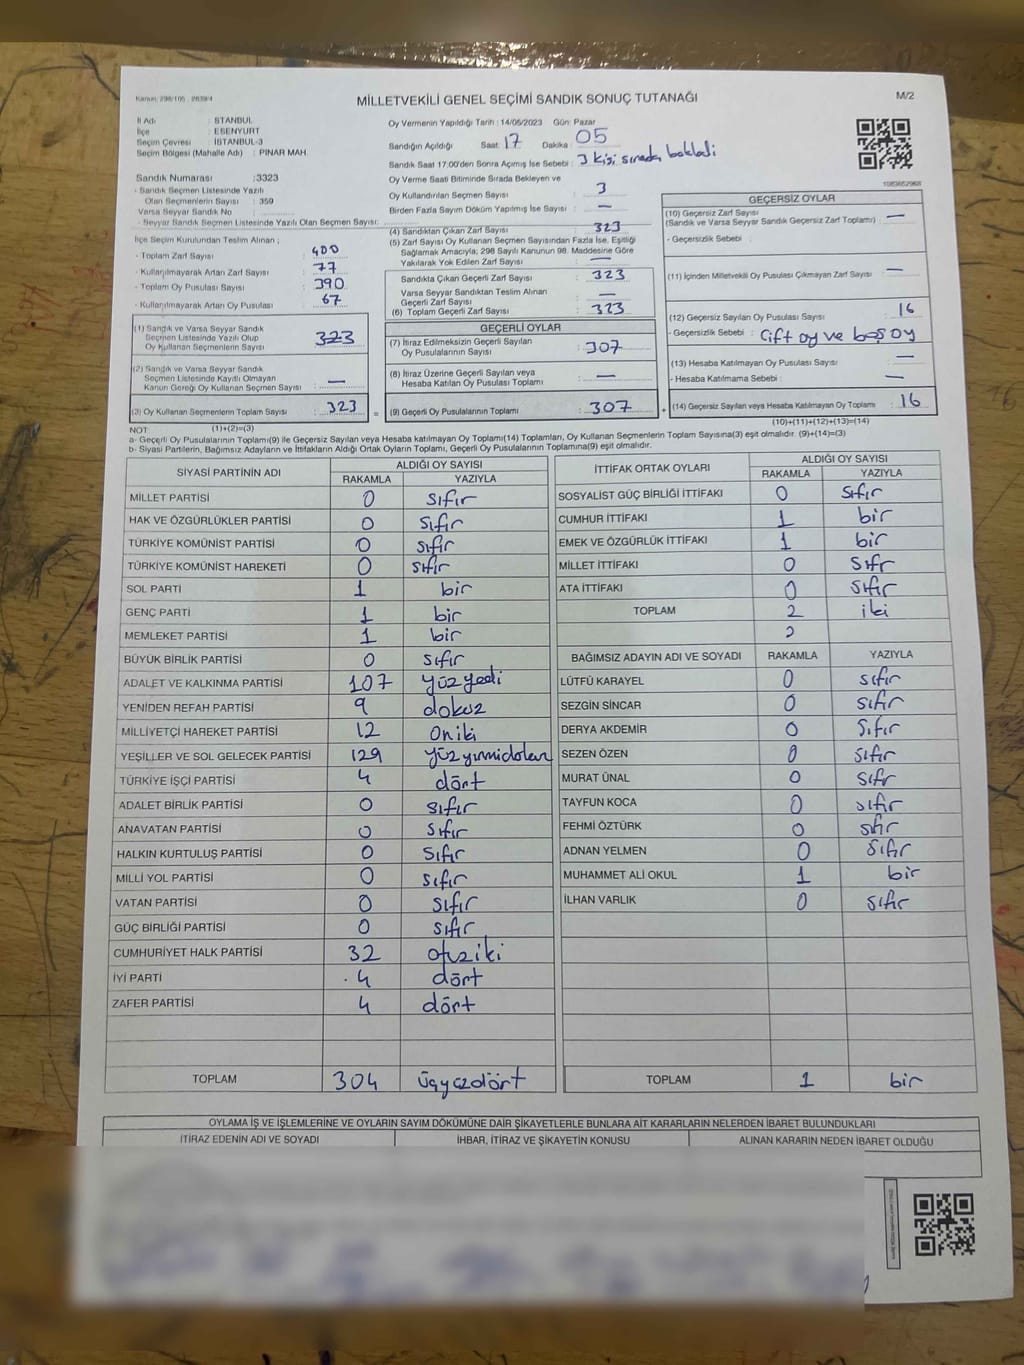 Kanun: 298/105 - 2839/4
MİLLETVEKİLİ GENEL SEÇİMİ SANDIK SONUÇ TUTANAĞI
M/2
İl Adı : İSTANBUL
İlçe : ESENYURT
Seçim Çevresi : İSTANBUL-3
Seçim Bölgesi (Mahalle Adı) : PINAR MAH.
Sandık Numarası : 3323
- Sandık Seçmen Listesinde Yazılı
Olan Seçmenlerin Sayısı : 359
Varsa Seyyar Sandık No :
- Seyyar Sandık Seçmen Listesinde Yazılı Olan Seçmen Sayısı:
İlçe Seçim Kurulundan Teslim Alınan ;
- Toplam Zarf Sayısı : 400
- Kullanılmayarak Artan Zarf Sayısı : 77
- Toplam Oy Pusulası Sayısı : 390
- Kullanılmayarak Artan Oy Pusulası : 67
(1) Sandık ve Varsa Seyyar Sandık
Seçmen Listesinde Yazılı Olup
Oy Kullanan Seçmenlerin Sayısı : 323
(2) Sandık ve Varsa Seyyar Sandık
Seçmen Listesinde Kayıtlı Olmayan
Kanun Gereği Oy Kullanan Seçmen Sayısı : —
(3) Oy Kullanan Seçmenlerin Toplam Sayısı : 323 =
Oy Vermenin Yapıldığı Tarih : 14/05/2023 Gün: Pazar
Sandığın Açıldığı Saat: 17 Dakika : 05
Sandık Saat 17:00'den Sonra Açımış İse Sebebi : 3 kişi sırada bekledi
Oy Verme Saati Bitiminde Sırada Bekleyen ve
Oy Kullandırılan Seçmen Sayısı : 3
Birden Fazla Sayım Döküm Yapılmış İse Sayısı : —
(4) Sandıktan Çıkan Zarf Sayısı : 323
(5) Zarf Sayısı Oy Kullanan Seçmen Sayısından Fazla İse, Eşitliği
Sağlamak Amacıyla; 298 Sayılı Kanunun 98. Maddesine Göre
Yakılarak Yok Edilen Zarf Sayısı : —
Sandıkta Çıkan Geçerli Zarf Sayısı : 323
Varsa Seyyar Sandıktan Teslim Alınan
Geçerli Zarf Sayısı : —
(6) Toplam Geçerli Zarf Sayısı : 323
GEÇERLİ OYLAR
(7) İtiraz Edilmeksizin Geçerli Sayılan
Oy Pusulalarının Sayısı : 307
(8) İtiraz Üzerine Geçerli Sayılan veya
Hesaba Katılan Oy Pusulası Toplamı : —
(9) Geçerli Oy Pusulalarının Toplamı : 307 +
1083652968
GEÇERSİZ OYLAR
(10) Geçersiz Zarf Sayısı
(Sandık ve Varsa Seyyar Sandık Geçersiz Zarf Toplamı) : —
- Geçersizlik Sebebi :
(11) İçinden Milletvekili Oy Pusulası Çıkmayan Zarf Sayısı : —
(12) Geçersiz Sayılan Oy Pusulası Sayısı : 16
- Geçersizlik Sebebi : Çift oy ve boş oy
(13) Hesaba Katılmayan Oy Pusulası Sayısı : —
- Hesaba Katılmama Sebebi : —
(14) Geçersiz Sayılan veya Hesaba Katılmayan Oy Toplamı : 16
NOT: (1)+(2)=(3)
(10)+(11)+(12)+(13)=(14)
a- Geçerli Oy Pusulalarının Toplamı(9) ile Geçersiz Sayılan veya Hesaba katılmayan Oy Toplamı(14) Toplamları, Oy Kullanan Seçmenlerin Toplam Sayısına(3) eşit olmalıdır. (9)+(14)=(3)
b- Siyasi Partilerin, Bağımsız Adayların ve İttifakların Aldığı Ortak Oyların Toplamı, Geçerli Oy Pusulalarının Toplamına(9) eşit olmalıdır.
SİYASİ PARTİNİN ADI
ALDIĞI OY SAYISI
RAKAMLA YAZIYLA
MİLLET PARTİSİ 0 sıfır
HAK VE ÖZGÜRLÜKLER PARTİSİ 0 sıfır
TÜRKİYE KOMÜNİST PARTİSİ 0 sıfır
TÜRKİYE KOMÜNİST HAREKETİ 0 sıfır
SOL PARTİ 1 bir
GENÇ PARTİ 1 bir
MEMLEKET PARTİSİ 1 bir
BÜYÜK BİRLİK PARTİSİ 0 sıfır
ADALET VE KALKINMA PARTİSİ 107 yüzyedi
YENİDEN REFAH PARTİSİ 9 dokuz
MİLLİYETÇİ HAREKET PARTİSİ 12 oniki
YEŞİLLER VE SOL GELECEK PARTİSİ 129
TÜRKİYE İŞÇİ PARTİSİ 4 dört
ADALET BİRLİK PARTİSİ 0 sıfır
ANAVATAN PARTİSİ 0 sıfır
HALKIN KURTULUŞ PARTİSİ 0 sıfır
MİLLİ YOL PARTİSİ 0 sıfır
VATAN PARTİSİ 0 sıfır
GÜÇ BİRLİĞİ PARTİSİ 0 sıfır
CUMHURİYET HALK PARTİSİ 32 otuziki
İYİ PARTİ 4 dört
ZAFER PARTİSİ 4 dört
TOPLAM 304 üçyüzdört
İTTİFAK ORTAK OYLARI
ALDIĞI OY SAYISI
RAKAMLA YAZIYLA
SOSYALİST GÜÇ BİRLİĞİ İTTİFAKI 0 sıfır
CUMHUR İTTİFAKI 1 bir
EMEK VE ÖZGÜRLÜK İTTİFAKI 1 bir
MİLLET İTTİFAKI 0 sıfr
ATA İTTİFAKI 0 sıfır
TOPLAM 2 iki
2
BAĞIMSIZ ADAYIN ADI VE SOYADI RAKAMLA YAZIYLA
LÜTFÜ KARAYEL 0 sıfır
SEZGİN SİNCAR 0 sıfır
DERYA AKDEMİR 0 sıfır
SEZEN ÖZEN 0 sıfır
MURAT ÜNAL 0 sıfr
TAYFUN KOCA 0 sıfır
FEHMİ ÖZTÜRK 0 sıfır
ADNAN YELMEN 0 sıfır
MUHAMMET ALİ OKUL 1 bir
İLHAN VARLIK 0 sıfır
TOPLAM 1 bir
OYLAMA İŞ VE İŞLEMLERİNE VE OYLARIN SAYIM DÖKÜMÜNE DAİR ŞİKAYETLERLE BUNLARA AİT KARARLARIN NELERDEN İBARET BULUNDUKLARI
İTİRAZ EDENİN ADI VE SOYADI İHBAR, İTİRAZ VE ŞİKAYETİN KONUSU ALINAN KARARIN NEDEN İBARET OLDUĞU